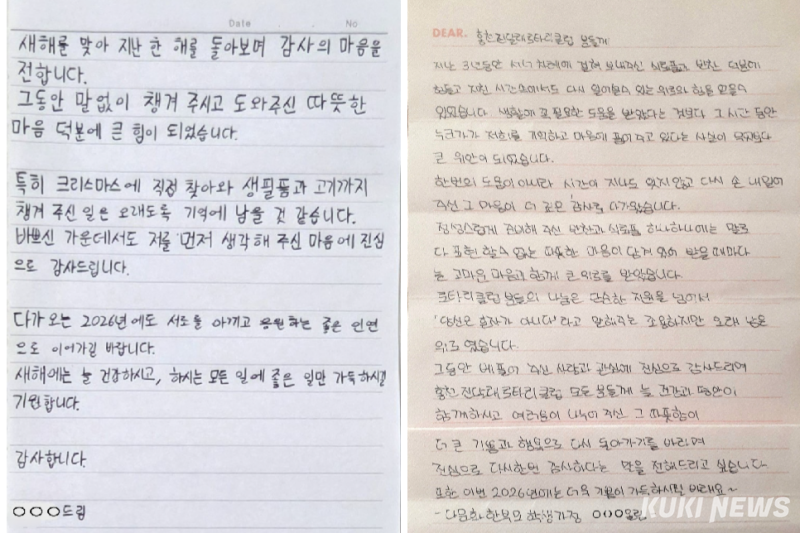 Date No
새해를 맞아 지난 한 해를 돌아보며 감사의 마음을
전합니다.
그동안 말없이 챙겨 주시고 도와주신 따뜻한
마음 덕분에 큰 힘이 되었습니다.
특히 크리스마스에 직접 찾아와 생필품과 고기까지
챙겨 주신 일은 오래도록 기억에 남을 것 같습니다.
바쁘신 가운데서도 저를 먼저 생각해 주신 마음에 진심
으로 감사드립니다.
다가오는 2026년에도 서로를 아끼고 응원하는 좋은 인연
으로 이어가길 바랍니다.
새해에는 늘 건강하시고, 하시는 모든 일에 좋은 일만 가득하시길
기원합니다.
감사합니다.
○○○드림
DEAR. 홍천진달래로타리클럽 분들께
지난 3년동안 서너 차례에 걸쳐 보내주신 식료품과 반찬 덕분에
힘들고 지친 시간속에서도 다시 일어날수 있는 위로와 힘을 얻을수
있었습니다. 생활에 꼭 필요한 도움을 받았다는 것보다 그 시간 동안
누군가가 저희를 기억하고 마음에 품어주고 있다는 사실이 무엇보다
큰 위안이 되었습니다.
한번의 도움이 아니라 시간이 지나도 잊지않고 다시 손 내밀어
주신 그 마음이 더 깊은 감사로 다가왔습니다.
정성스럽게 준비해 주신 반찬과 식료품 하나하나에는 말로
다 표현 할수 없는 따뜻한 마음이 담겨 있어 받을 때마다
늘 고마운 마음과 함께 큰 위로를 받았습니다.
로타리클럽 분들의 나눔은 단순한 지원을 넘어서
'당신은 혼자가 아니다' 라고 말해주는 조용하지만 오래 남은
위로 였습니다.
그동안 베풀어 주신 사랑과 관심에 진심으로 감사드리며
홍천 진달래로타리클럽 모든 분들께 늘 건강과 평안이
함께하시고 여러분이 나누어 주신 그 따뜻함이
더 큰 기쁨과 행복으로 다시 돌아가기를 바라며
진심으로 다시한번 감사하다는 말을 전해드리고 싶습니다
또한 이번 2026년에는 더욱 기쁨이 가득하시길 바래요~
- 다문화한부모 학생가정 ○○○올림
KUKI NEWS